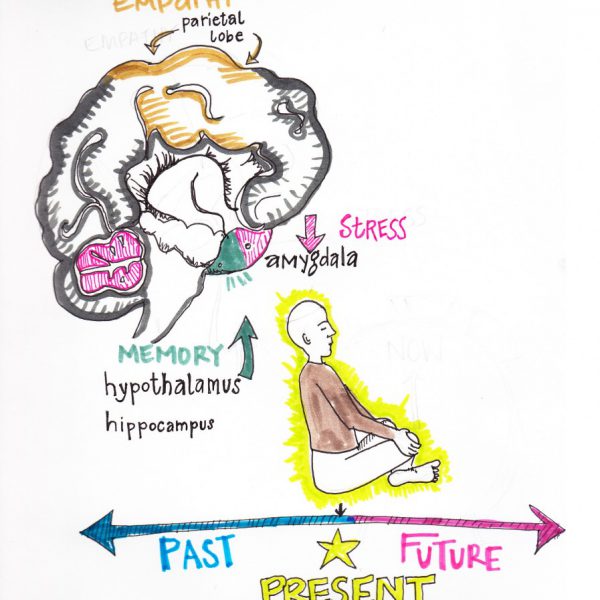 EMPATHY
parietal
lobe
EMPATHY
STRESS
amygdala
MEMORY
hypothalamus
hippocampus
NOW
PAST
FUTURE
PRESENT